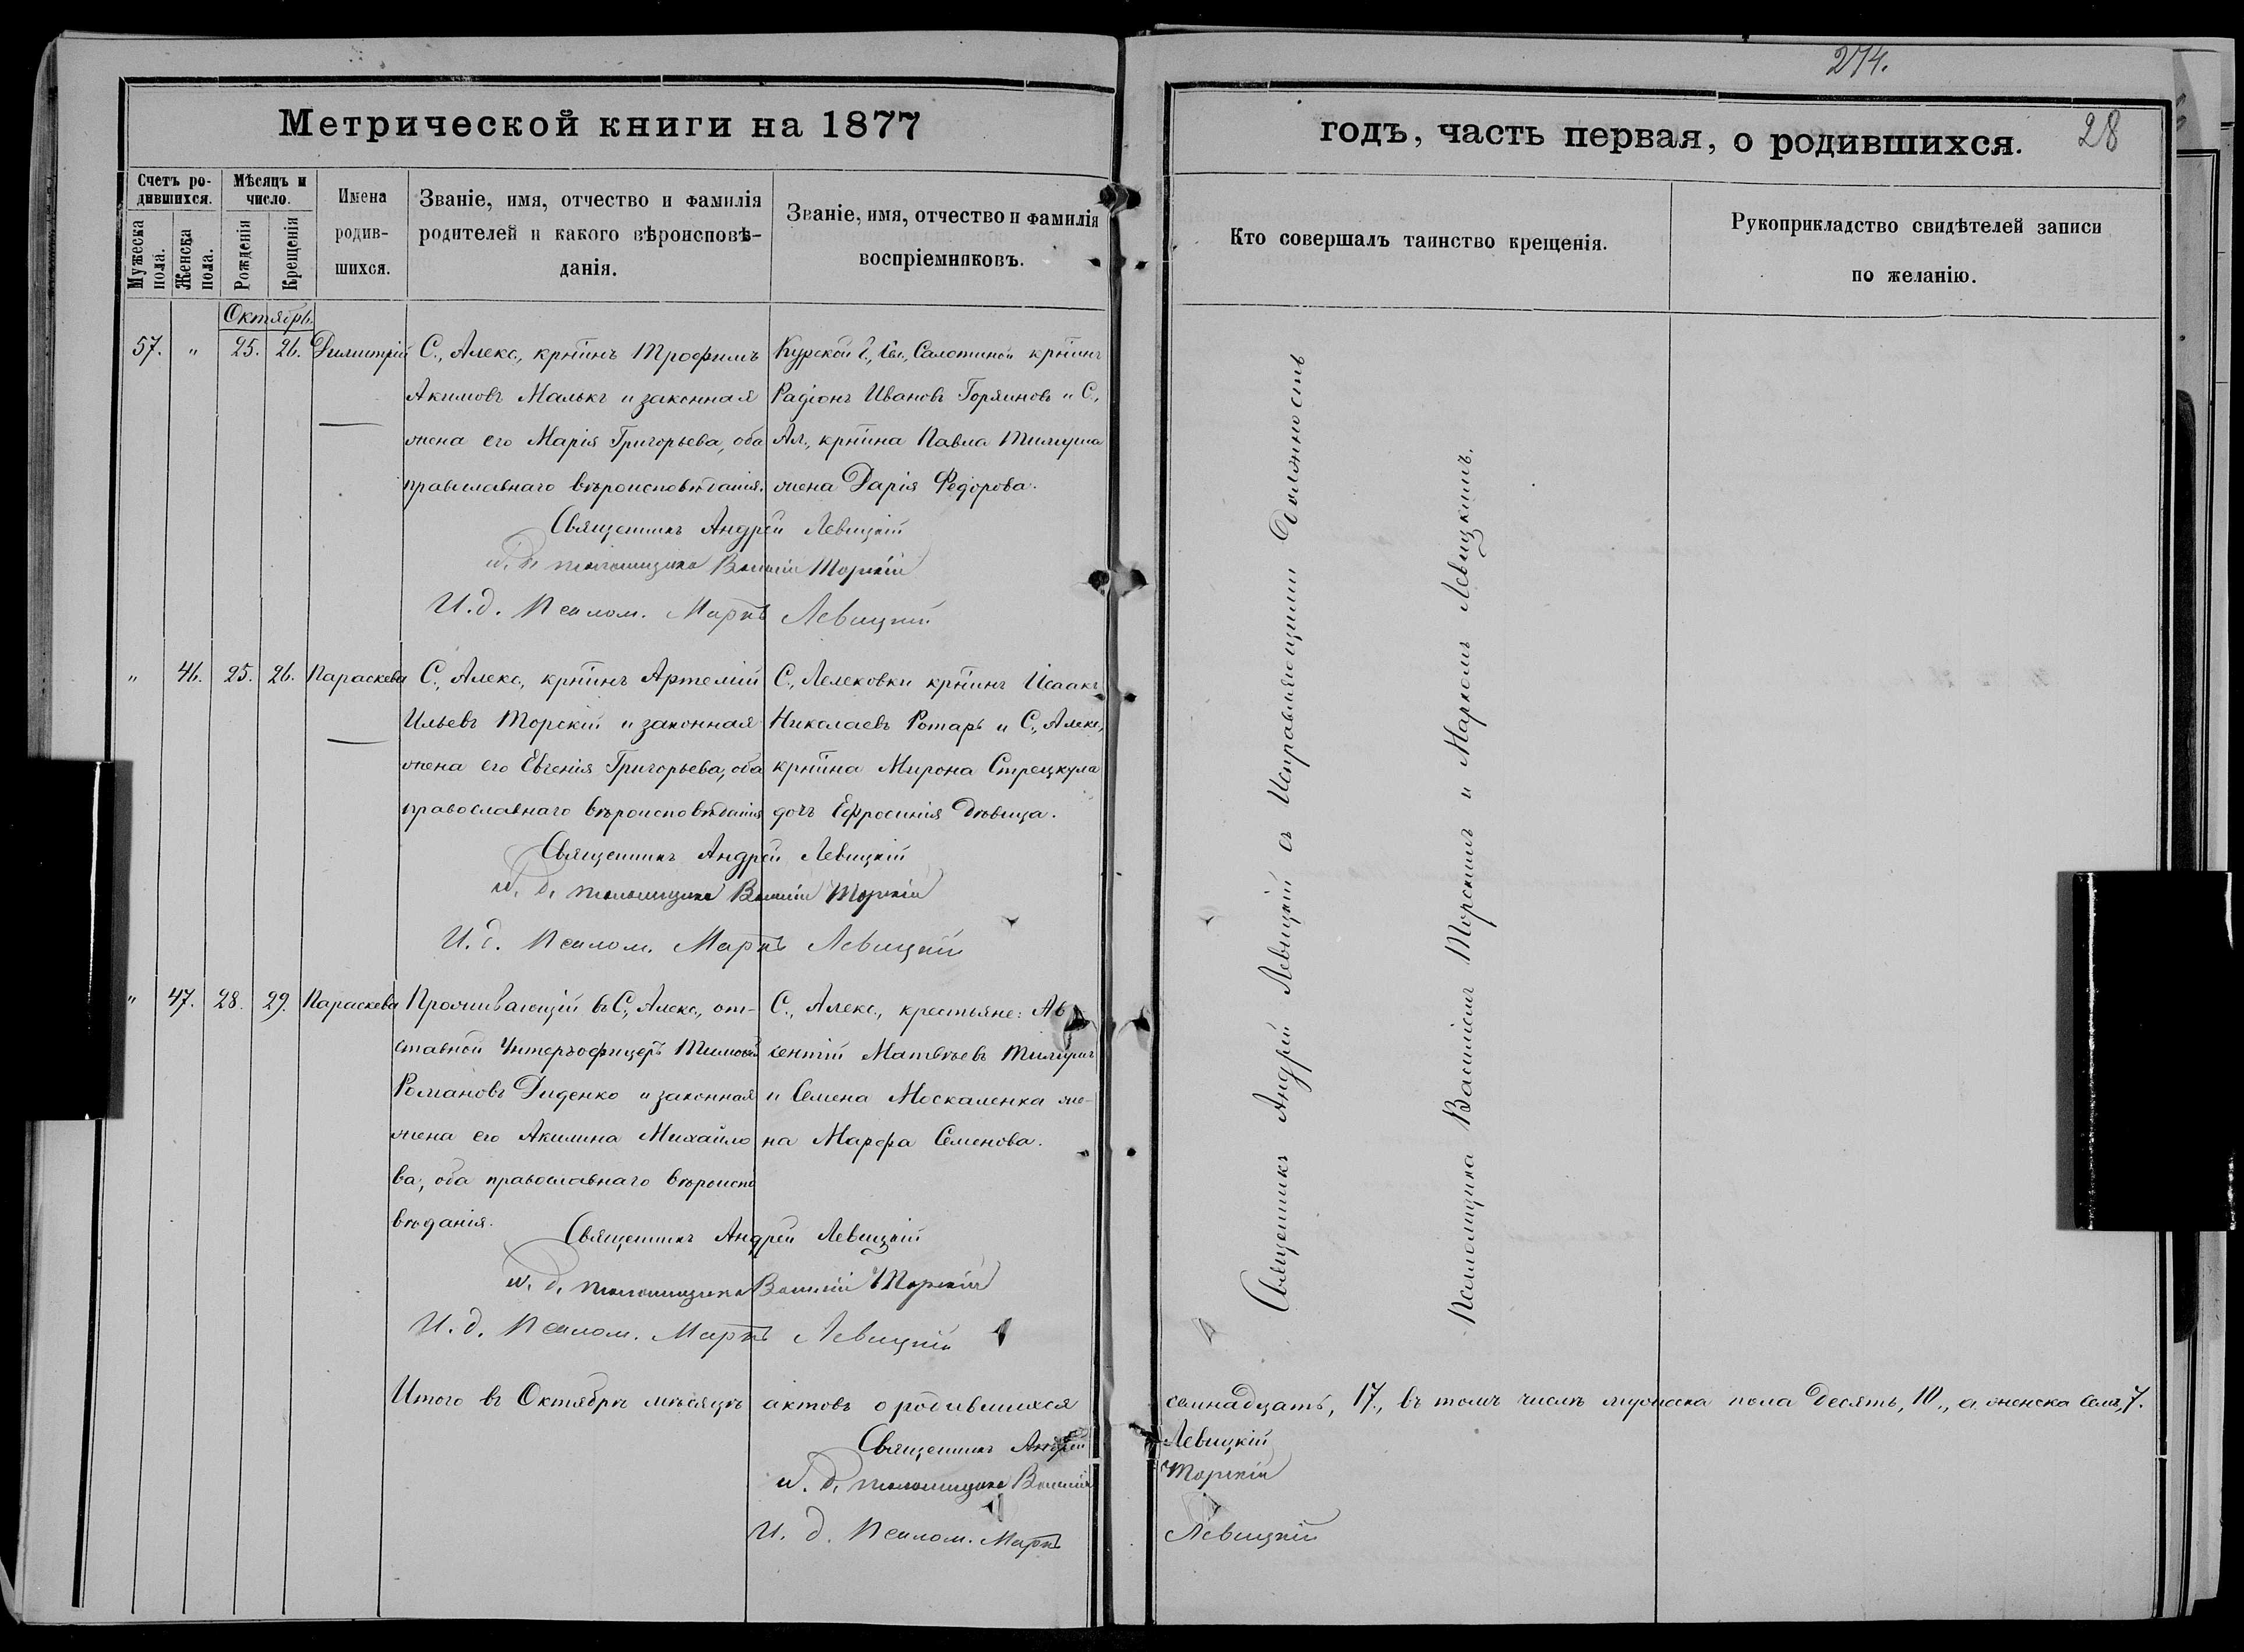 274.
Метрической книги на 1877
годъ, часть первая, о родившихся.
28
Счетъ ро-
дившихся.
Мужеска
пола.
Женска
пола.
Мѣсяцъ и
число.
Рожденія
Крещенія
Имена
родив-
шихся.
Званіе, имя, отчество и фамилія
родителей и какого вѣроисповѣ-
данія.
Званіе, имя, отчество и фамилія
воспріемниковъ.
Кто совершалъ таинство крещенія.
Рукоприкладство свидѣтелей записи
по желанію.
Октябрь.
57. " 25. 26. Димитрій
С., Алекс., кр-нинъ Трофимъ
Акимовъ Малыкъ и законная
жена его Марія Григорьева, оба
православнаго вѣроисповѣданія.
Курской г., сл., Салотиной кр-нинъ
Радіонъ Ивановъ Горяиновъ и С.,
Ал., кр-нина Павла
жена Дарія Федорова.
Священникъ Андрей Левицкій
и. д. псаломщика Василій Торскій
И. д. Псалом. Маркъ Левицкій
" 46. 25. 26. Параскева
С., Алекс., кр-нинъ Артемій
Ильевъ Торскій и законная
жена его Евгенія Григорьева, оба
православнаго вѣроисповѣданія
С., Лелековки кр-нинъ Исаакъ
Николаевъ Ротарь и С., Алекс.,
кр-нина Мирона Стрецкула
дочь Ефросинія дѣвица.
Священникъ Андрей Левицкій
и. д. псаломщика Василій Торскій
И. д. Псалом. Маркъ Левицкій
" 47. 28. 29. Параскева
Проживающій въ С., Алекс., от-
ставной Унтеръофицеръ Тимофей
Романовъ Диденко и законная
жена его Акилина Михайло
ва, оба православнаго вѣроиспо
вѣданія.
С., Алекс., крестьяне: Ав
сентій Матвѣевъ
и Семена Москаленка же-
на Марфа Семенова.
Священникъ Андрей Левицкій
и. д. псаломщика Василій Торскій
И. д. Псалом. Маркъ Левицкій
Священникъ Андрей Левицкій съ Исправляющими Должность
Псаломщика Василіемъ Торскимъ и Маркомъ Левицкимъ.
Итого въ Октябрѣ мѣсяцѣ актовъ о родившихся семнадцать, 17., въ томъ числѣ мужеска пола десять, 10., а женска семь, 7.
Священникъ Андрей Левицкій
и. д. псаломщика Василій Торскій
И. д. Псалом. Маркъ Левицкій